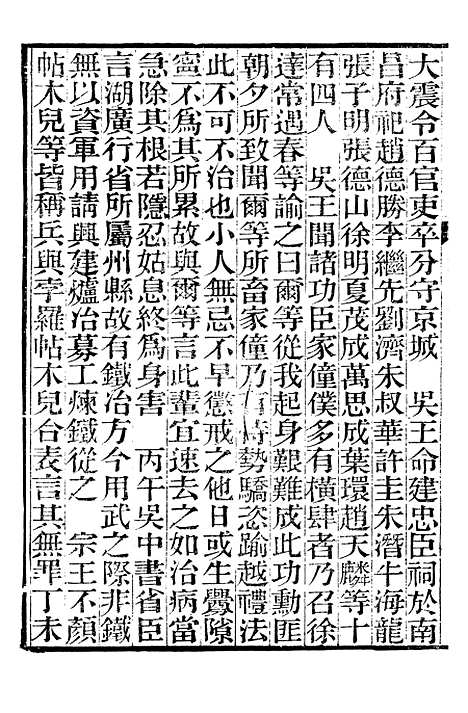 大震令百官吏卒分守京城　吳王命建忠臣祠於南
昌府祀趙德勝李繼先劉濟朱叔華許圭朱潛牛海龍
張子明張德山徐明夏茂成萬思成葉環趙天麟等十
有四人　吳王聞諸功臣家僮僕多有橫肆者乃召徐
達常遇春等諭之曰爾等從我起身艱難成此功勳匪
朝夕所致聞爾等所畜家僮乃有恃勢驕恣踰越禮法
此不可不治也小人無忌不早懲戒之他日或生釁隙
寧不為其所累故與爾等言此輩宜速去之如治病當
急除其根若隱忍姑息終為身害　丙午吳中書省臣
言湖廣行省所屬州縣故有鐵冶方今用武之際非鐵
無以資軍用請興建爐冶募工煉鐵從之　宗王不顏
帖木兒等皆稱兵與孛羅帖木兒合表言其無罪丁未